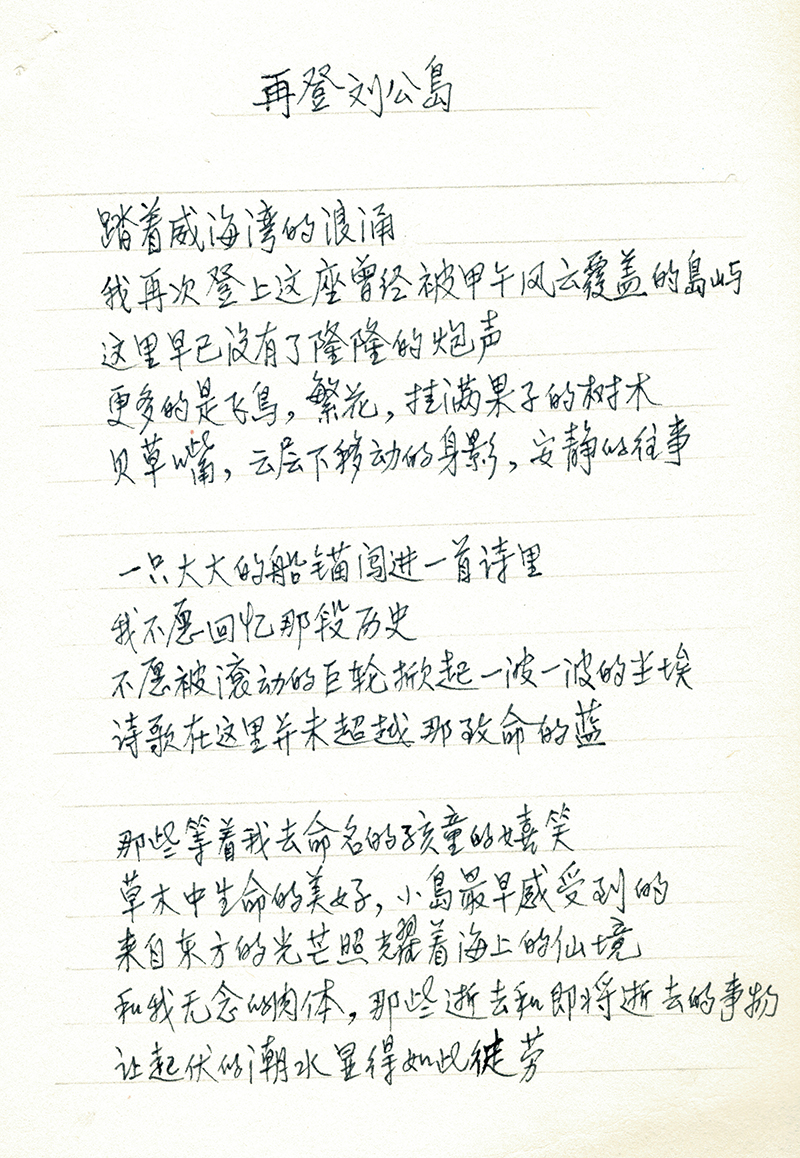 再登刘公岛
踏着威海湾的浪涌
我再次登上这座曾经被甲午风云覆盖的岛屿
这里早已没有了隆隆的炮声
更多的是飞鸟，繁花，挂满果子的树木
贝草嘴，云层下移动的身影，安静的往事
一只大大的船锚闯进一首诗里
我不愿回忆那段历史
不愿被滚动的巨轮掀起一波一波的尘埃
诗歌在这里并未超越那致命的蓝
那些等着我去命名的孩童的嬉笑
草木中生命的美好，小岛最早感受到的
来自东方的光芒照耀着海上的仙境
和我无念的肉体，那些逝去和即将逝去的事物
让起伏的潮水显得如此徒劳